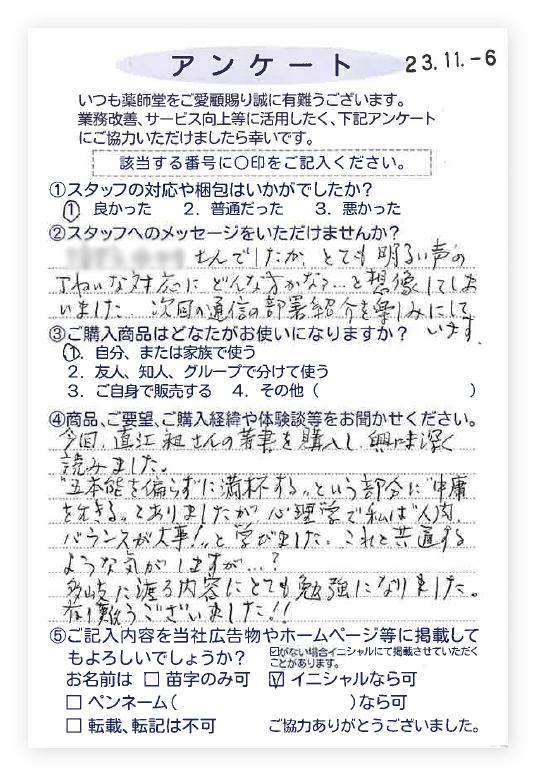 アンケート
23.11.-6
いつも薬師堂をご愛顧賜り誠に有難うございます。
業務改善、サービス向上等に活用したく、下記アンケート
にご協力いただけましたら幸いです。
該当する番号に〇印をご記入ください。
①スタッフの対応や梱包はいかがでしたか?
1. 良かった 2. 普通だった 3. 悪かった
②スタッフへのメッセージをいただけませんか?
さんでしたか、とても明るい声の
ていねいな対応にどんな方かな?…と想像してしま
いました。次回の通信の部署紹介を楽しみにして
います。
③ご購入商品はどなたがお使いになりますか?
1. 自分、または家族で使う
2. 友人、知人、グループで分けて使う
3. ご自身で販売する 4. その他( )
④商品、ご要望、ご購入経緯や体験談等をお聞かせください。
今回、直江昶さんの著書を購入し、興味深く
読みました。
"五本能を偏らずに満杯する"という部分に"中庸
を生きる"とありましたが心理学で私は"人肉、
バランスが大事!"と学びました。これと共通する
ような気がしますが…?
多岐に渡る内容にとても勉強になりました。
有難うございました!!
⑤ご記入内容を当社広告物やホームページ等に掲載して
もよろしいでしょうか?
☑がない場合イニシャルにて掲載させていただく
ことがあります。
お名前は □ 苗字のみ可 ☑ イニシャルなら可
□ ペンネーム( )なら可
□ 転載、転記は不可 ご協力ありがとうございました。